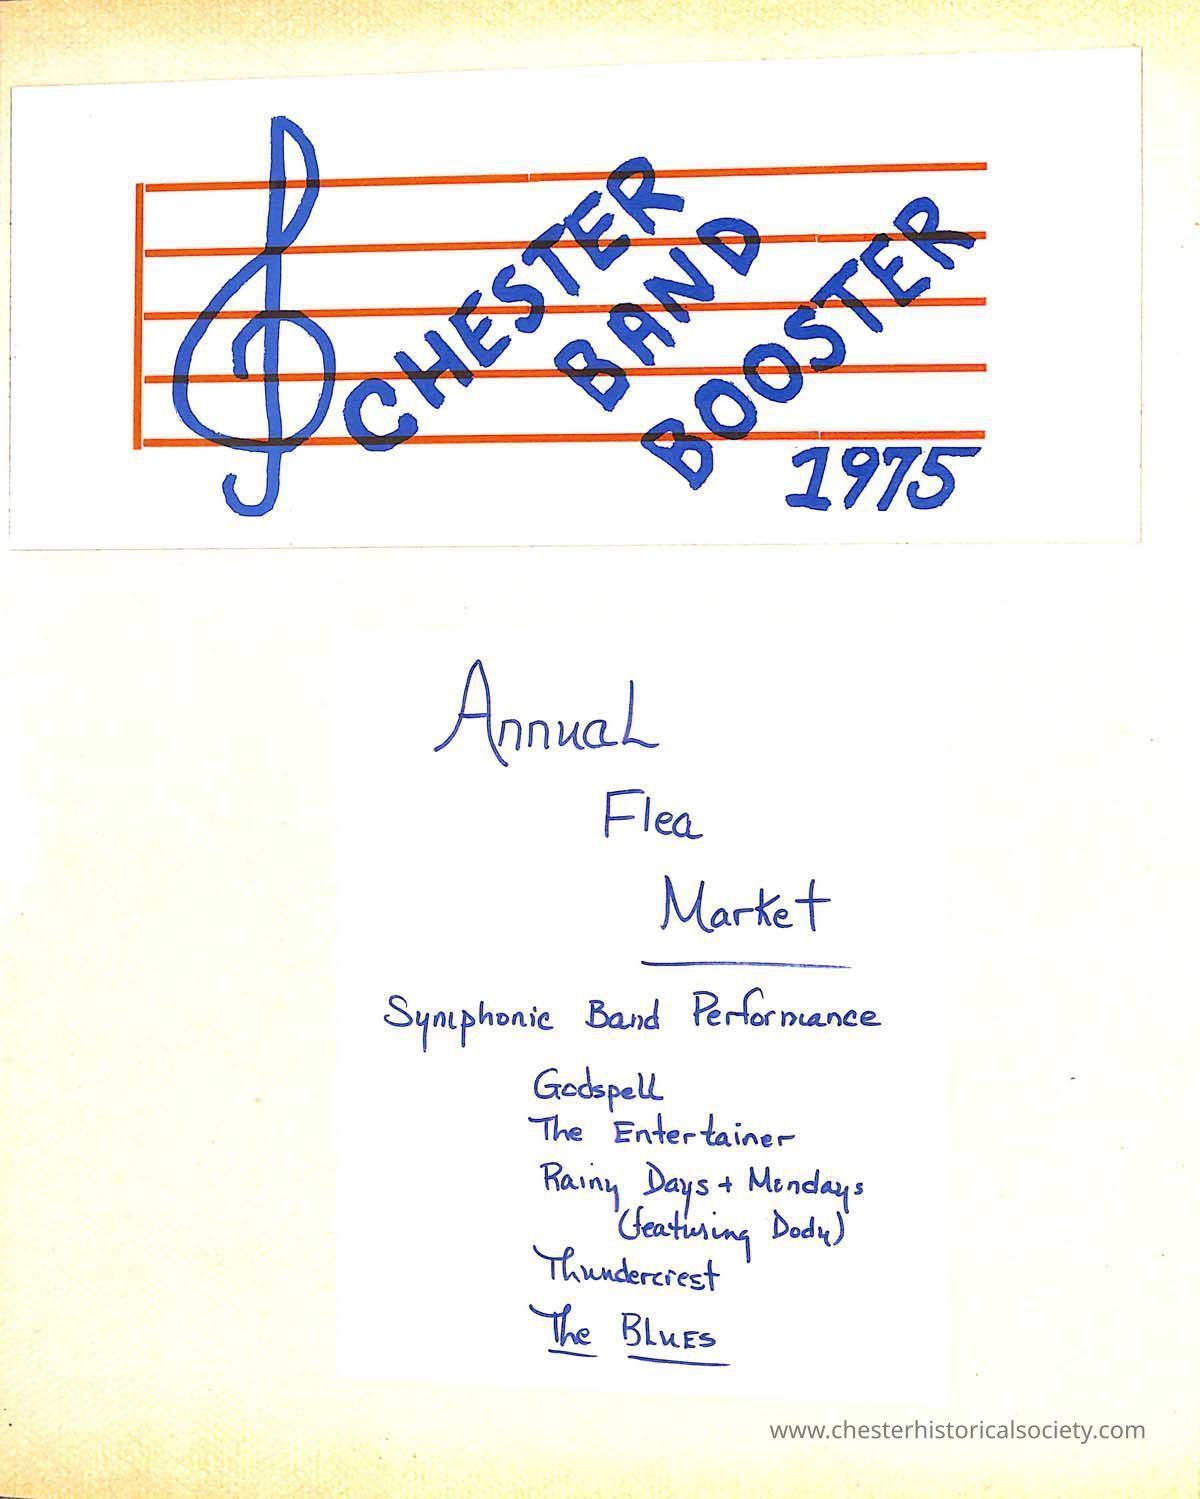 CHESTER
BAND
BOOSTER
1975
Annual
Flea
Market
Symphonic Band Performance
Godspell
The Entertainer
Rainy Days + Mondays
(featuring Dody)
Thundercrest
The BLUES
www.chesterhistoricalsociety.com